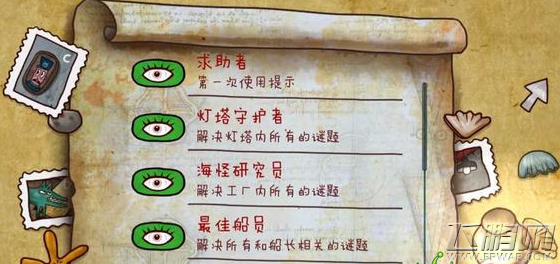 求助者
第一次使用提示
灯塔守护者
解决灯塔内所有的谜题
海怪研究员
解决工厂内所有的谜题
最佳船员
解决所有和船长相关的谜题